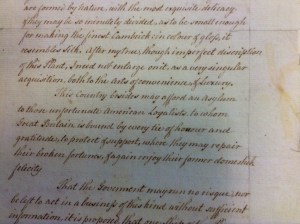 are formed by nature, with the most exquisite delicacy
they may be so minutely divided, as to be small enough
for making the finest Cambrick in colour & gloss, it
resembles Silk. After my true, though imperfect description
of this Plant, I need not enlarge on it, as a very singular
acquisition, both to the Arts of convenience & Luxury.
This Country besides may afford an Asylum
to those unfortunate American Loyalists, to whom
Great Britain is bound by every tie of honour and
gratitude, to protect & support, where they may repair
their broken fortunes, & again enjoy their former domestick
felicity
That the Government may run no risque, nor
be left to act in a business of this kind without sufficient
information, it is proposed that